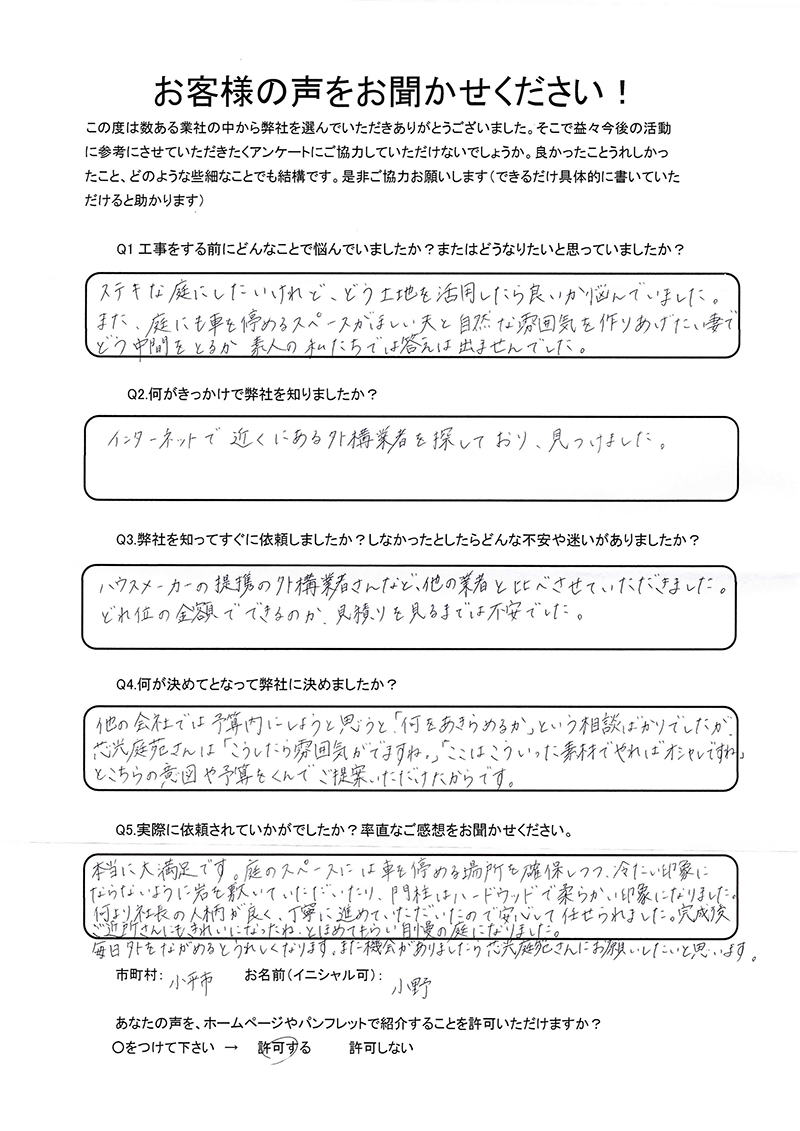 お客様の声をお聞かせください！
この度は数ある業社の中から弊社を選んでいただきありがとうございました。そこで益々今後の活動
に参考にさせていただきたくアンケートにご協力していただけないでしょうか。良かったことうれしかっ
たこと、どのような些細なことでも結構です。是非ご協力お願いします（できるだけ具体的に書いていた
だけると助かります）
Q1 工事をする前にどんなことで悩んでいましたか？またはどうなりたいと思っていましたか？
ステキな庭にしたいけれど、どう土地を活用したら良いか悩んでいました。
また、庭にも車を停めるスペースがほしい夫と自然な雰囲気を作りあげたい妻で
どう中間をとるか 素人の私たちでは答えは出ませんでした。
Q2.何がきっかけで弊社を知りましたか？
インターネットで近くにある外構業者を探しており、見つけました。
Q3.弊社を知ってすぐに依頼しましたか？しなかったとしたらどんな不安や迷いがありましたか？
ハウスメーカーの提携の外構業者さんなど、他の業者と比べさせていただきました。
どれ位の金額でできるのか、見積りを見るまでは不安でした。
Q4.何が決めてとなって弊社に決めましたか？
他の会社では予算内にしようと思うと「何をあきらめるか」という相談ばかりでしたが、
芯光庭苑さんは「こうしたら雰囲気がでますね。」「ここはこういった素材でやればオシャレですね」
とこちらの意図や予算をくんでご提案いただけたからです。
Q5.実際に依頼されていかがでしたか？率直なご感想をお聞かせください。
本当に大満足です。庭のスペースには車を停める場所を確保しつつ、冷たい印象に
ならないように岩を敷いていただいたり、門柱はハードウッドで柔らかい印象になりました。
何より社長の人柄が良く、丁寧に進めていただいたので安心して任せられました。完成後
ご近所さんにもきれいになったね、とほめてもらい自慢の庭になりました。
毎日外をながめるとうれしくなります。また機会がありましたら芯光庭苑さんにお願いしたいと思います。
市町村： 小平市 お名前（イニシャル可）： 小野
あなたの声を、ホームページやパンフレットで紹介することを許可いただけますか？
〇をつけて下さい → 許可する 許可しない